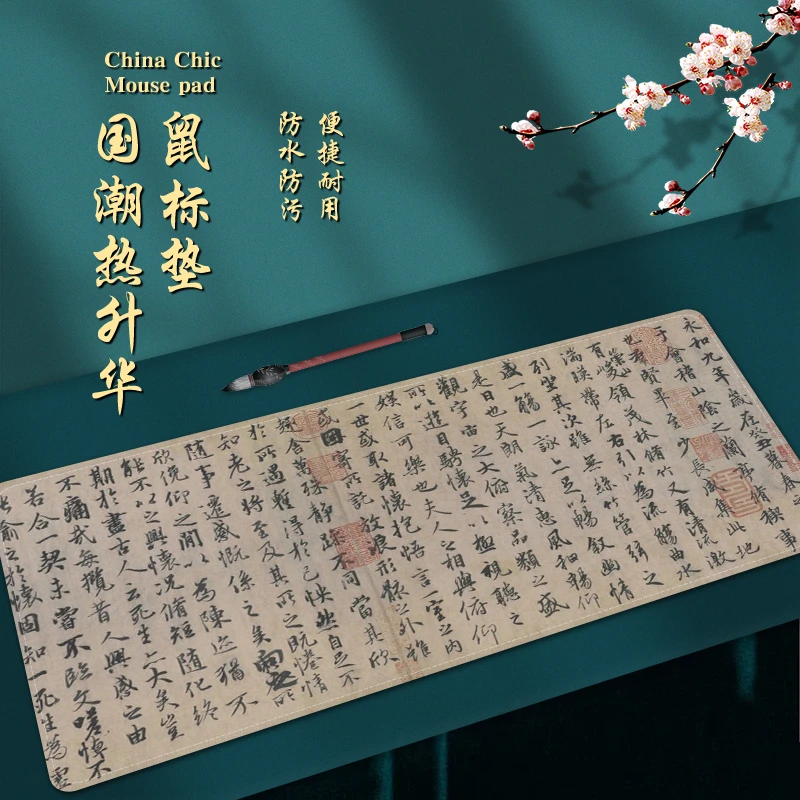 China Chic
Mouse pad
鼠标垫
国潮热升华
便捷耐用
防水防污
永和九年歲在癸丑暮春
于會稽山陰之蘭亭脩稧事
也羣賢畢至少長咸集此地
有崇山峻領茂林脩竹又有清流激
湍暎帶左右引以為流觴曲水
列坐其次雖無絲竹管弦之
盛一觴一詠亦足以暢叙幽情
是日也天朗氣清惠風和暢仰
觀宇宙之大俯察品類之盛
所以遊目騁懷足以極視聽之
娛信可樂也夫人之相與俯仰
一世或取諸懷抱悟言一室之內
或因寄所託放浪形骸之外雖
趣舍萬殊靜躁不同當其欣
於所遇蹔得於己怏然自足不
知老之將至及其所之既惓情
隨事遷感慨係之矣向之所
欣俛仰之間以為陳迹猶不
能不以之興懷況脩短隨化終
期於盡古人云死生亦大矣豈
不痛哉每攬昔人興感之由
若合一契未嘗不臨文嗟悼不
喻之於懷固知一死生為虛